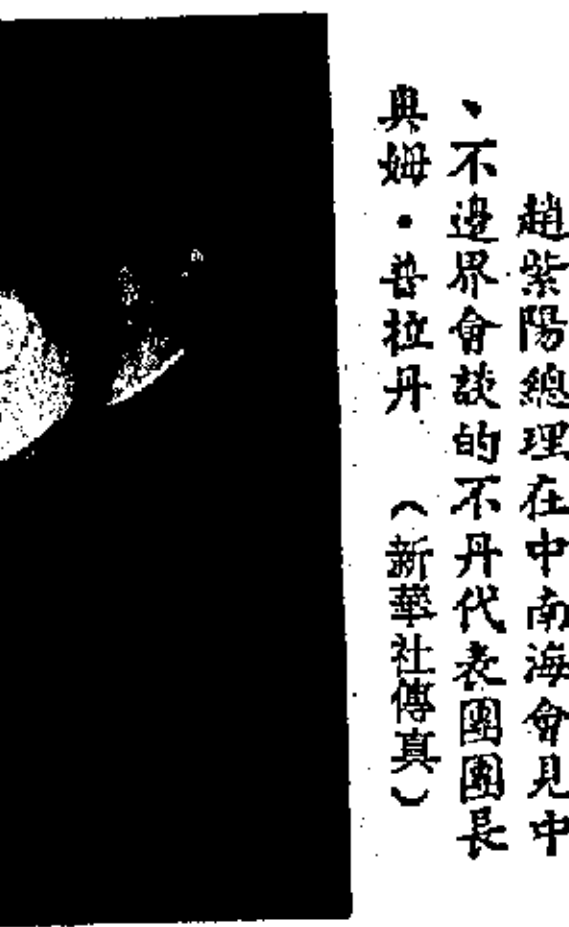 趙紫陽總理在中南海會見中
、不邊界會談的不丹代表團團長
奥姆・普拉丹 (新華社傳真)